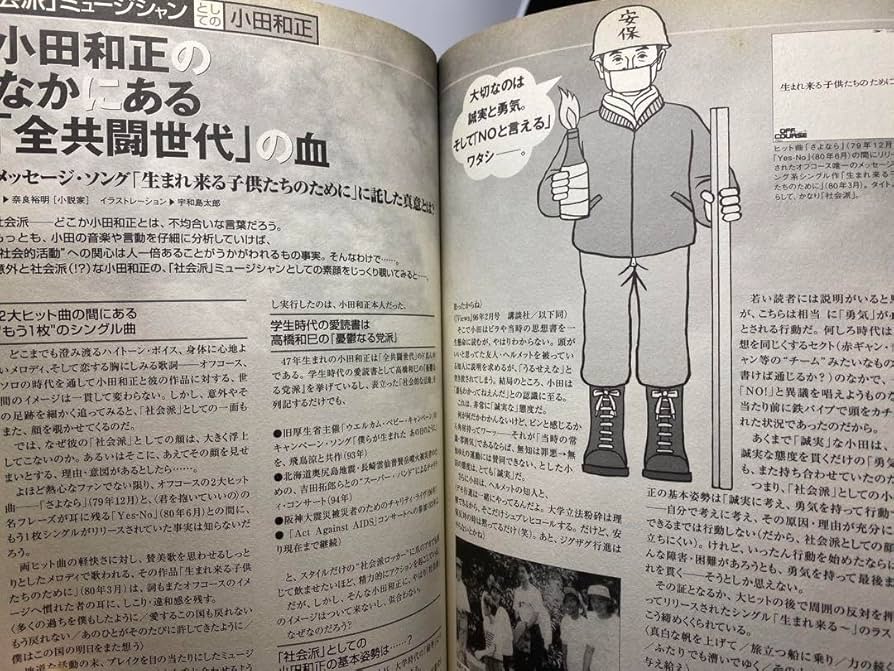 会派」ミュージシャン としての 小田和正
小田和正の
なかにある
「全共闘世代」の血
メッセージ・ソング「生まれ来る子供たちのために」に託した真意とは?
奈良裕明[小説家] イラストレーション▶宇和島太郎
社会派——どこか小田和正とは、不均合いな言葉だろう。
もっとも、小田の音楽や言動を仔細に分析していけば、
“社会的活動”への関心は人一倍あることがうかがわれるもの事実。そんなわけで……。
意外と社会派(!?)な小田和正の、「社会派」ミュージシャンとしての素顔をじっくり覗いてみると——。
2大ヒット曲の間にある
“もう1枚”のシングル曲
どこまでも澄み渡るハイトーン・ボイス、身体に心地よ
いメロディ、そして恋する胸にしみる歌詞——オフコース、
ソロの時代を通して小田和正と彼の作品に対する、世
間のイメージは一貫して変わらない。しかし、意外やそ
の足跡を細かく追ってみると、「社会派」としての一面も
また、顔を覗かせてくるのだ。
では、なぜ彼の「社会派」としての顔は、大きく浮上
してこないのか。あるいはそこに、あえてその顔を見せ
まいとする、理由・意図があるとしたら……。
よほど熱心なファンでない限り、オフコースの2大ヒッ
ト曲——「さよなら」(79年12月)と、〈君を抱いていいの〉の
名フレーズが耳に残る「Yes-No」(80年6月)との間に、
もう1枚シングルがリリースされていた事実は知らないだ
ろう。
両ヒット曲の軽快さに対し、賛美歌を思わせるしっと
りとしたメロディで歌われる、その作品「生まれ来る子供
たちのために」(80年3月)は、詞もまたオフコースのイメ
ージへ慣れた者の耳に、しこり・違和感を残す。
〈多くの過ちを僕もしたように/愛するこの国も戻れない
もう戻れない/あのひとがそのたびに許してきたように/
僕はこの国の明日をまた想う〉
し実行したのは、小田和正本人だった。
学生時代の愛読書は
高橋和巳の「憂鬱なる党派」
47年生まれの小田和正は「全共闘世代」
である。学生時代の愛読書として高橋和巳の「憂鬱な
る党派」を挙げているし、表立った「社会的な活動」を
列記するだけでも、
●旧厚生省主催「ウエルカム・ベビー・キャンペーン」
キャンペーン・ソング「僕らが生まれた あの日のように」
を、飛鳥涼と共作(93年)
●北海道奥尻島地震・長崎雲仙普賢岳噴火被災者の
ための、吉田拓郎らとの“スーパー・バンド”によるチャリテ
ィ・コンサート(94年)
●阪神大震災被災者のためのチャリティ・ライヴ
●「Act Against AIDS」コンサートへの参加
り現在まで継続)
と、スタイルだけの“社会派ロッカー”に
じて飲ませたいほど、精力的にアクションを
だが、しかし、そんな小田和正に、やはり「社会派」
のイメージはついて来ないし、似合わない。
なぜなのだろう?
「社会派」としての
小田和正の基本姿勢は……?
安保
大切なのは
誠実と勇気。
そして「NOと言える」
ワタシ—。
思ったからね〉
(『Views』96年2月号 講談社/以下同)
そこで小田はビラや当時の思想書を一
生懸命に読むが、やはりわからない。頭が
いいと思ってた友人・ヘルメットを被ってい
る知人に説明を求めるが、「うるせえな」と
突き放されてしまう。結局のところ、小田は
〈誰もわかってねえんだ〉との認識に至る。
これは、非常に「誠実な」態度だ。
生まれ来る子供たちのために
OFF COURSE
ヒット曲「さよなら」(79年12月)
「Yes-No」(80年6月)の間にリリー
スされたオフコース唯一のメッセー
ジ系シングル作「生まれ来る子
供たちのために」(80年3月)。タイト
らして、かなり「社会派」。
若い読者には説明がいると思
が、こちらは相当 に「勇気」が必
とされる行動だ。何しろ時代は、
想を同じくするセクト(赤ギャン・
ャン等の“チーム”みたいなもんだ
書けば通じるか?)のなかで、
「NO!」と異議を唱えようものな
当たり前に鉄パイプで頭をカチ
れた状況であったのだから。
あくまで「誠実」な小田は、
誠実な態度を貫くだけの「勇気
も、また持ち合わせていたのだ
つまり、「社会派」としての小
正の基本姿勢は「誠実に考え、勇気を持って行動
——自分で考えに考え、その原因・理由が充分に
できるまでは行動しない(だから、社会派としての顔
立ちにくい)。けれど、いったん行動を始めたならば
んな障害・困難があろうとも、勇気を持って最後ま
れを貫く——そうとしか思えない。
その証となるか、大ヒットの後で周囲の反対を押
ってリリースされたシングル「生まれ来る〜」のラス
こう締めくくられている。
〈真白な帆を上げて/旅立つ船に乗り/力の
/ふたりでも漕いでゆく/
与え給え〉